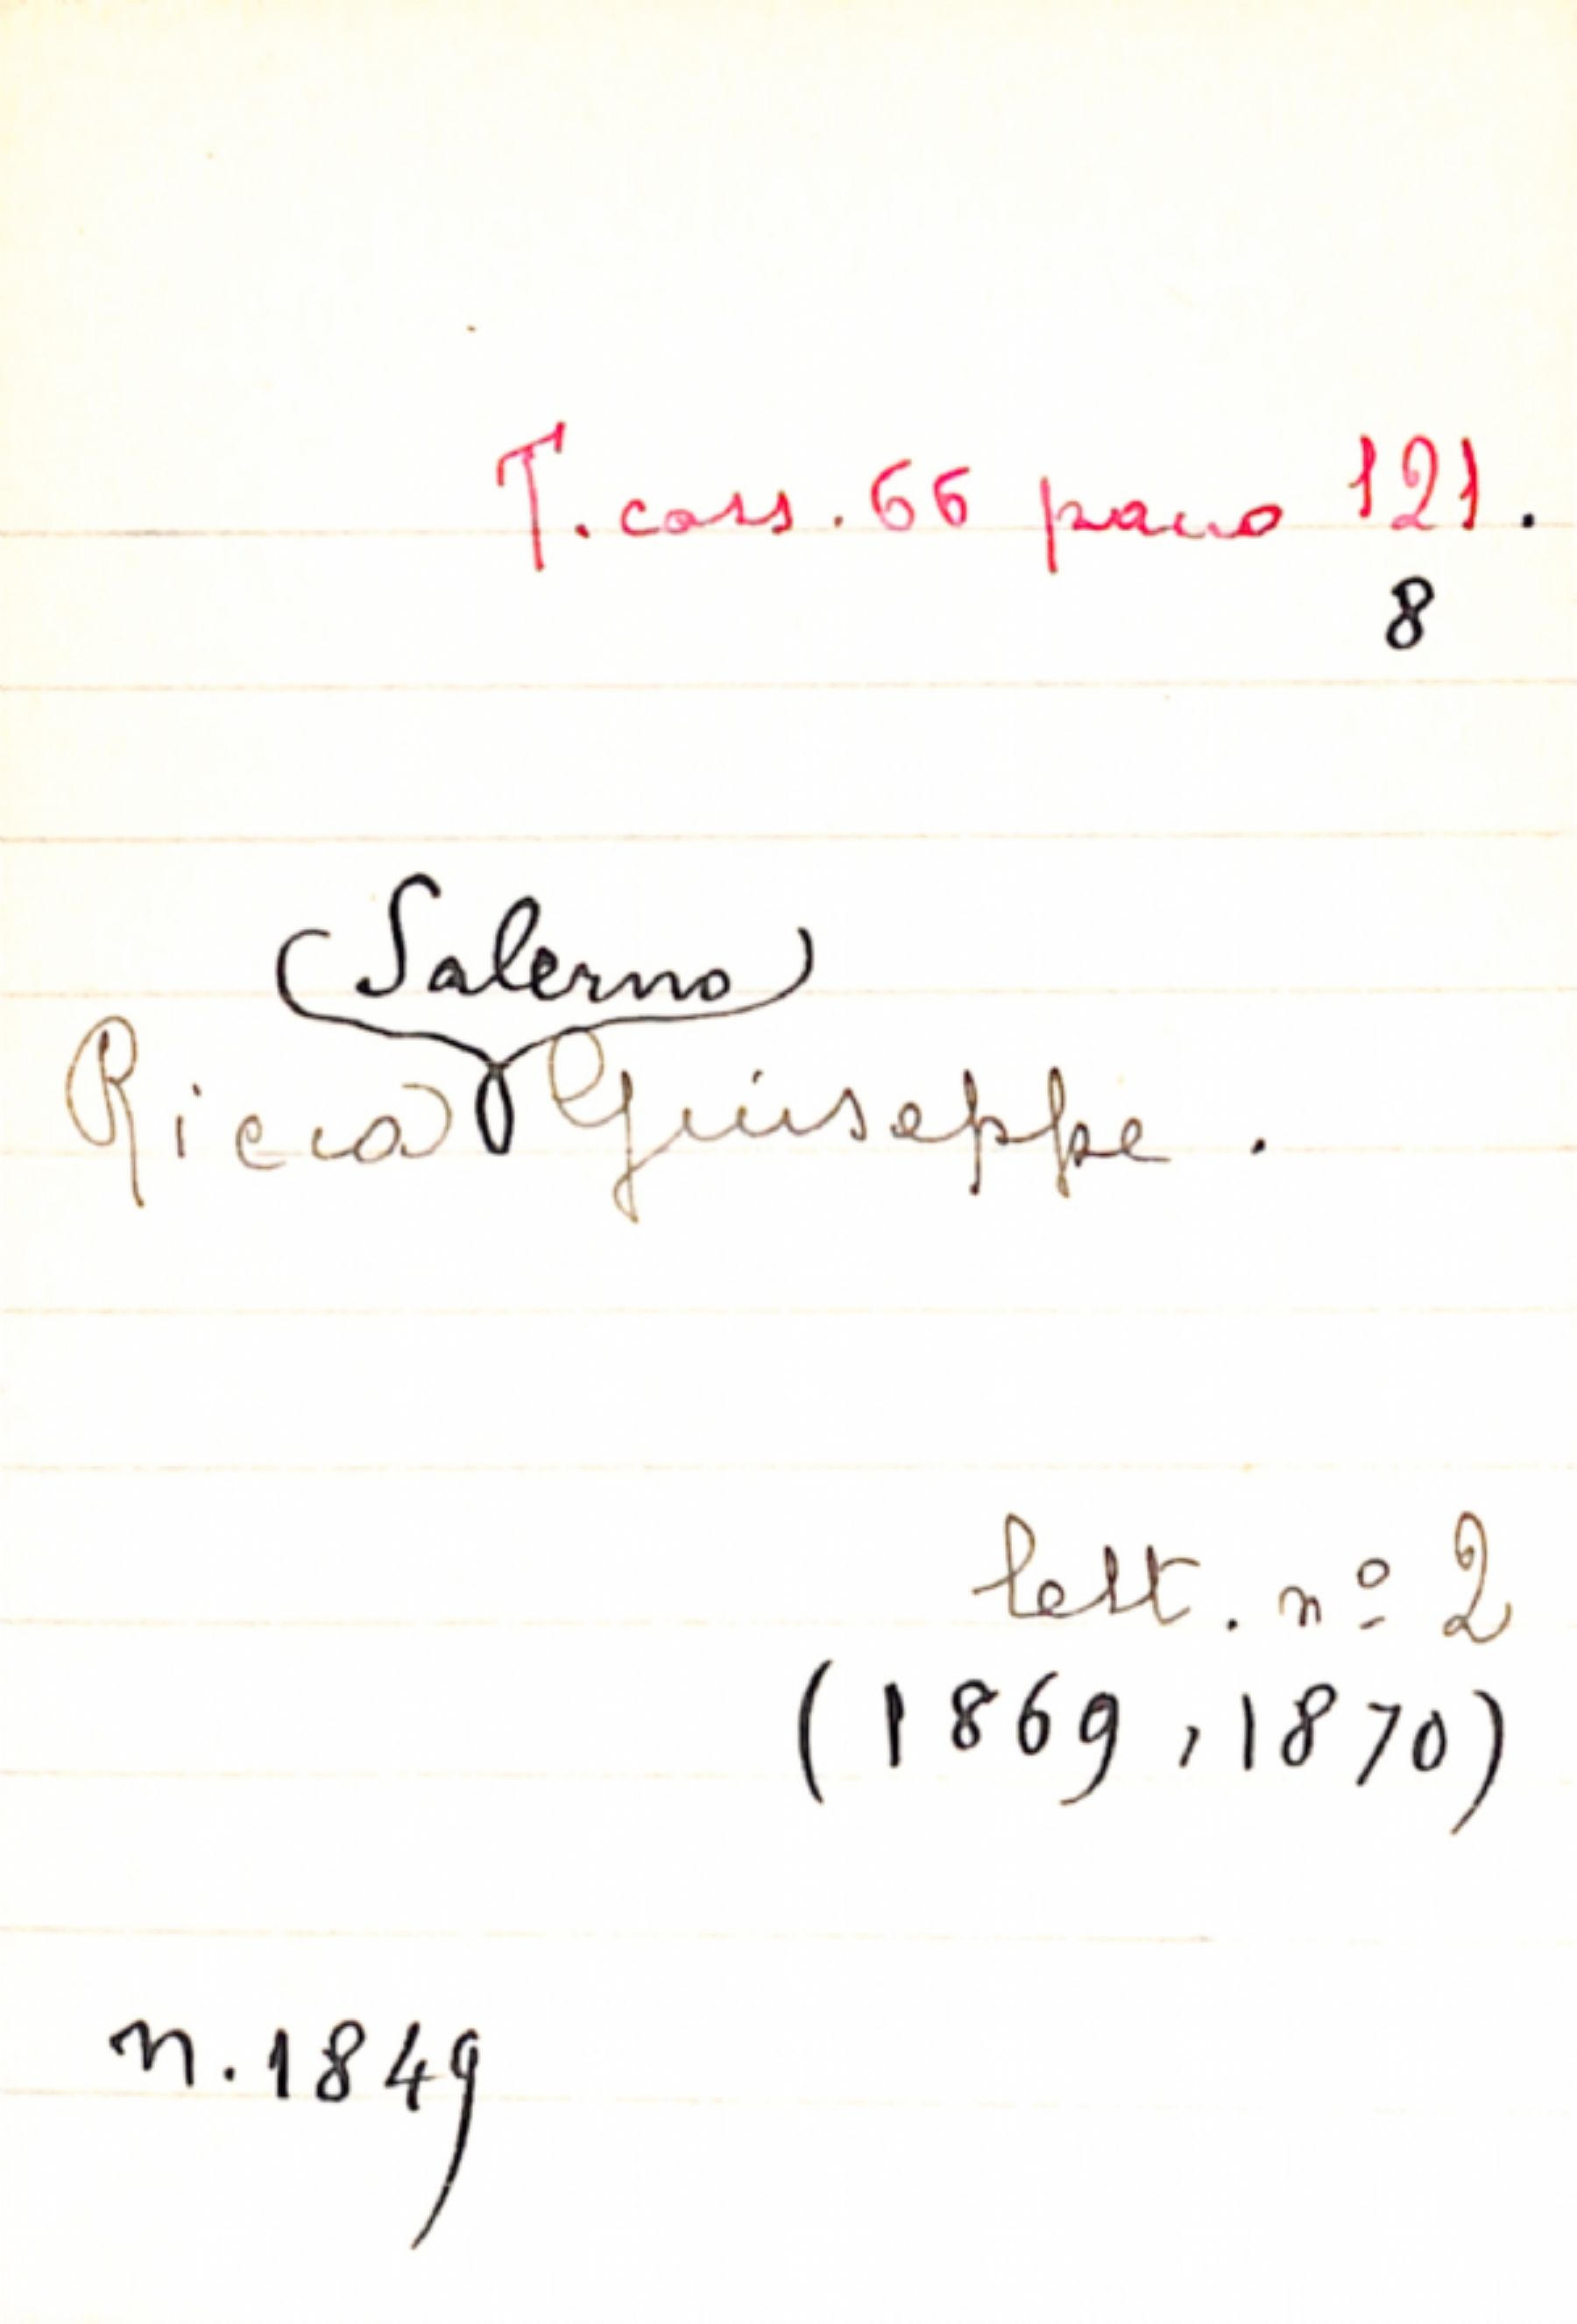 T. cass. 66 pacco 121.
8
(Salerno)
Ricca Giuseppe.
lett. nº 2
(1869, 1870)
n. 1849